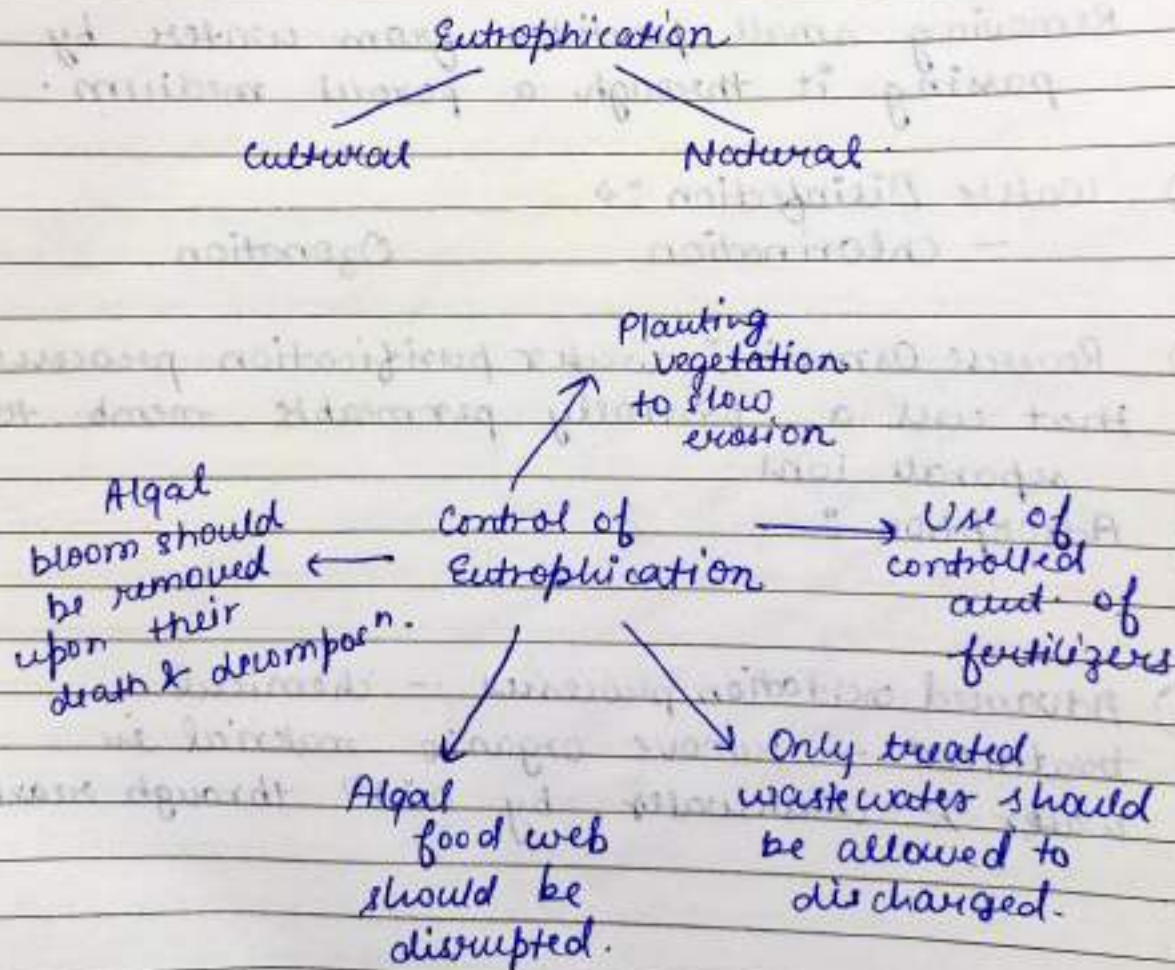 Eutrophication
Cultural
Natural.
Planting
vegetation
to slow
erosion
Algal
bloom should
be removed
upon their
death & decomposⁿ.
Control of
Eutrophication
Use of
controlled
amt. of
fertilizers
Algal
food web
should be
disrupted.
Only treated
wastewater should
be allowed to
discharged.